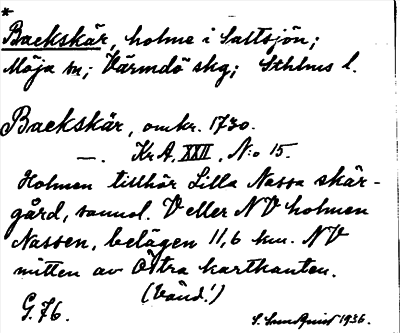 *
Backskär, holme i Saltsjön;
Möja sn; Värmdö skg; Sthlms l.
Backskär, omkr. 1730.
—. KrA, XXII, N:o 15.
Holmen tillhör Lilla Nassa skär-
gård, samml. V eller NV holmen
Nassen, belägen 11,6 km. NV
mitten av Östra kartkanten.
(Vänd!)
G. 76.
S. Sundquist 1936.